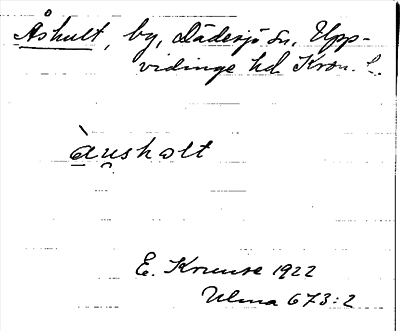 Åshult, by, Dädesjö sn, Upp-
vidinge hd Kron. l.
àu̯sholt
E. Kruuse 1922
Ulma 673:2